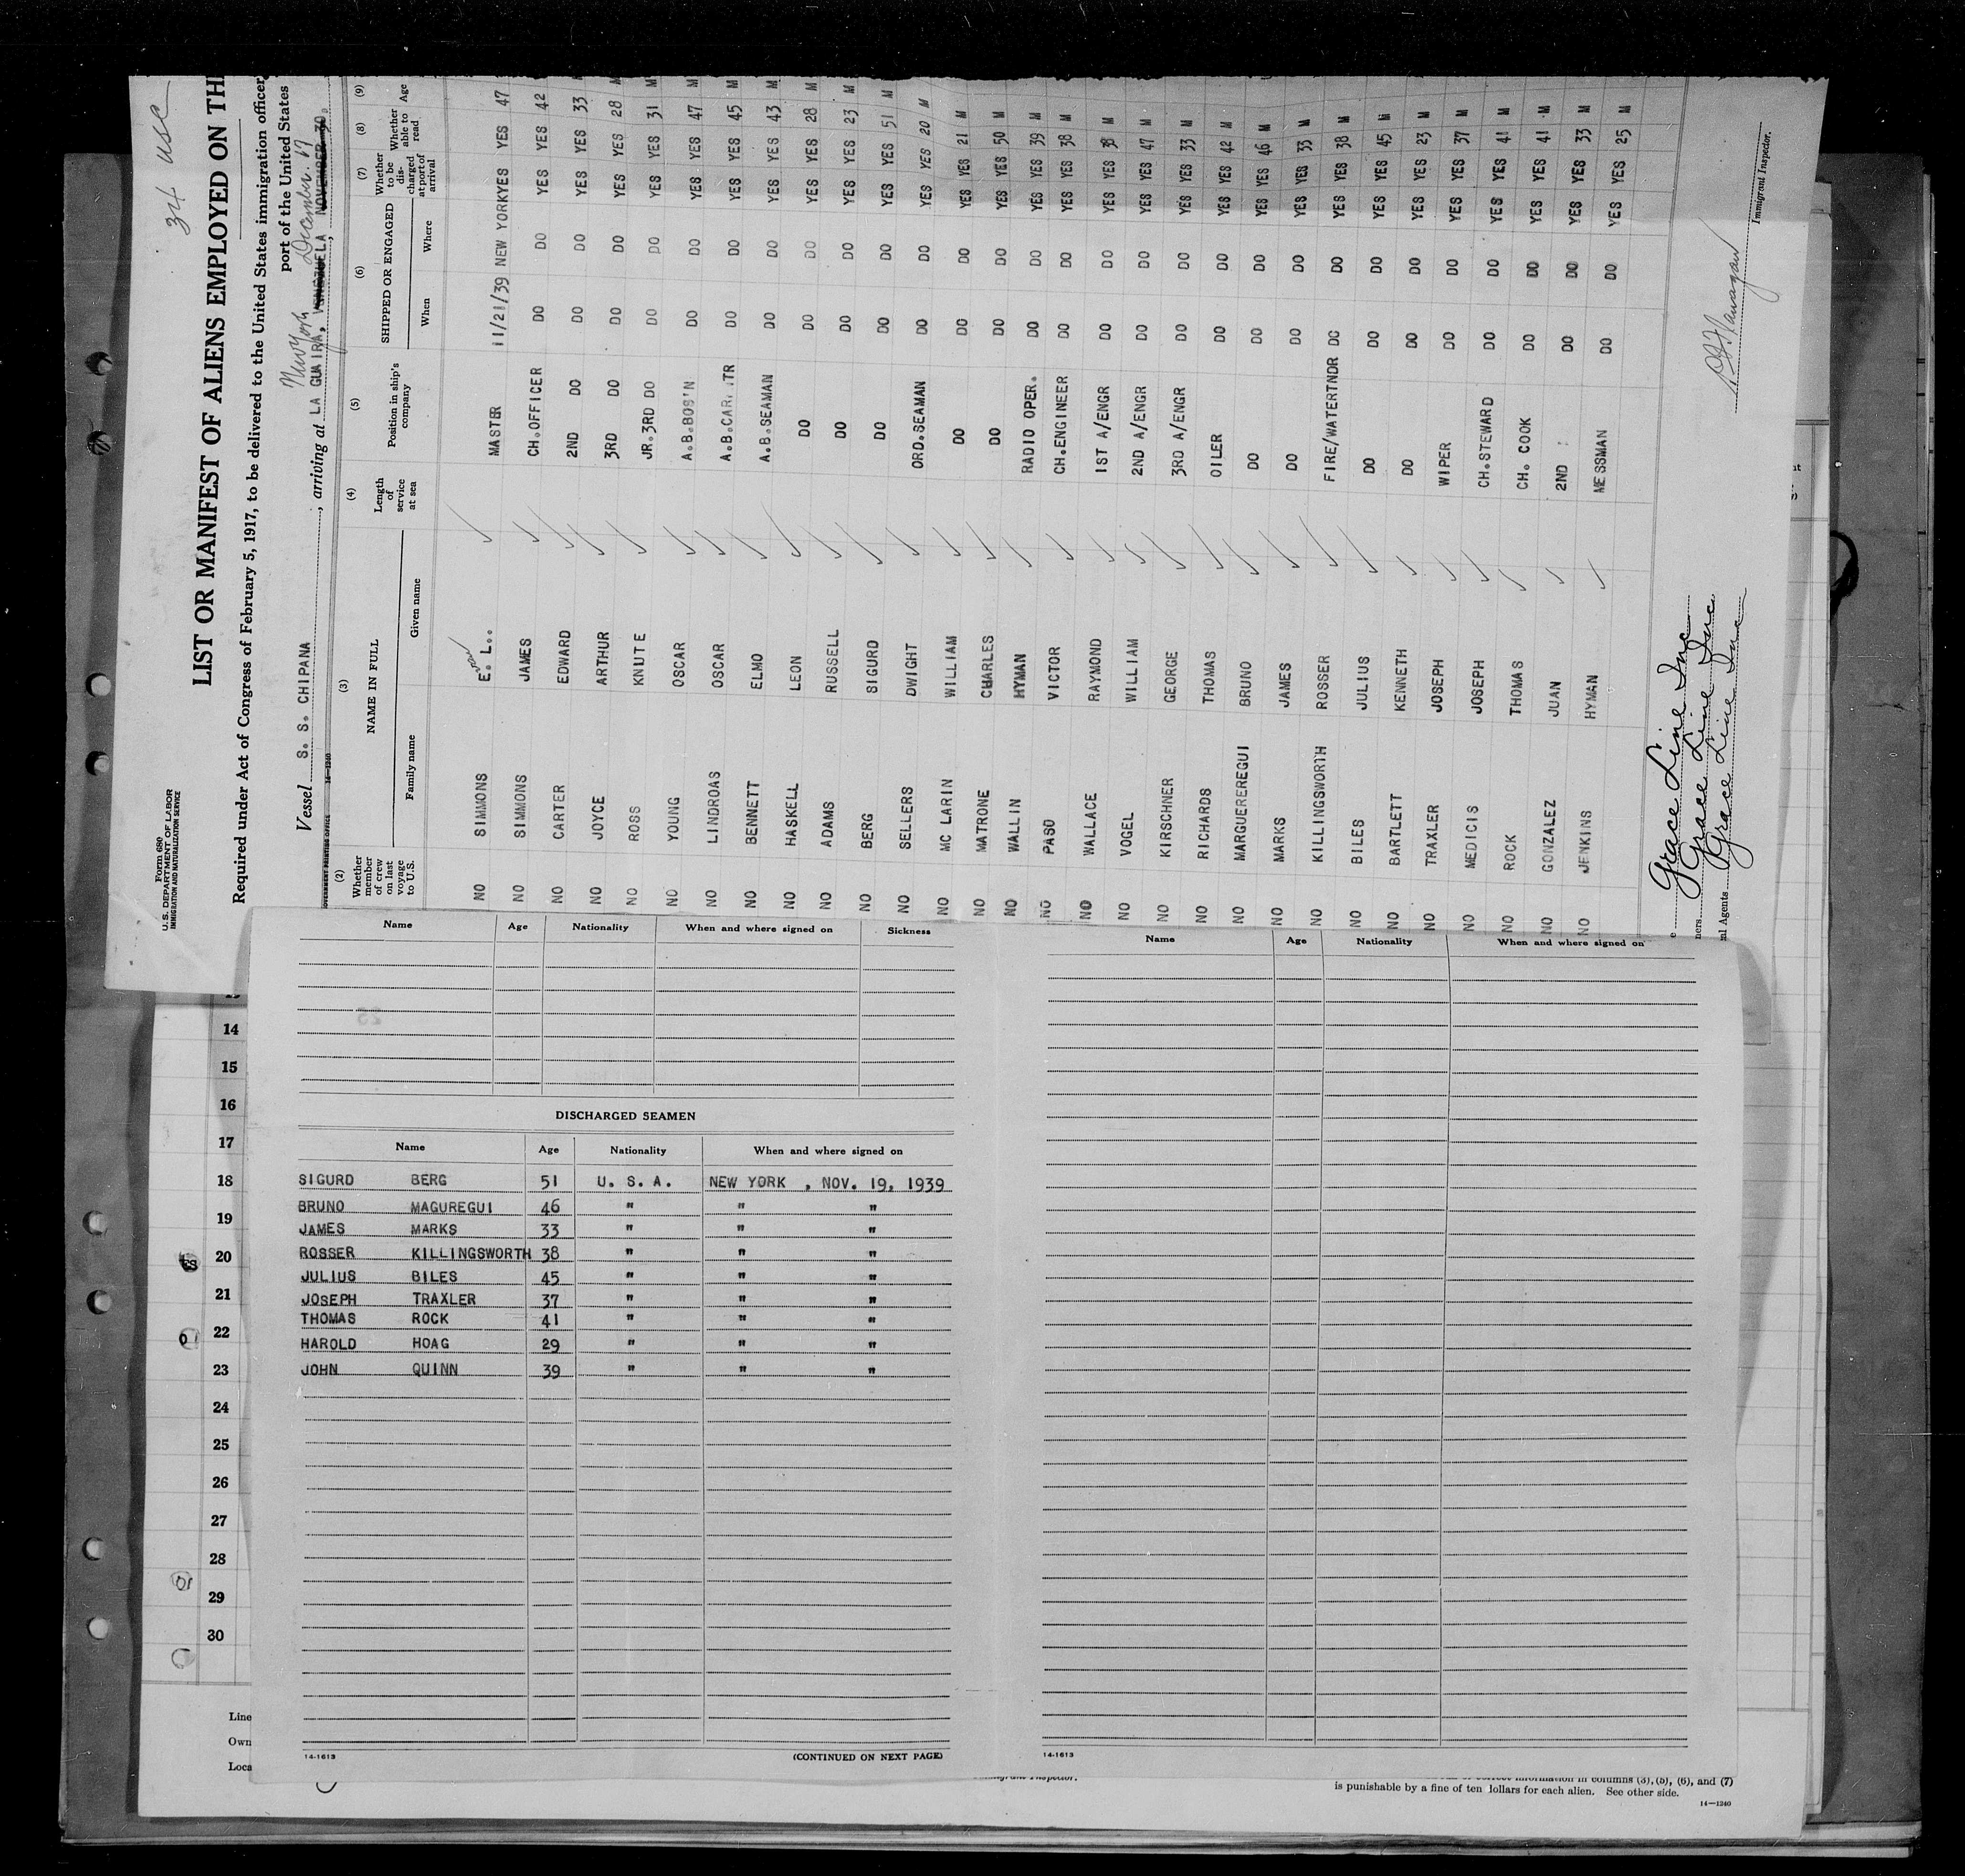 34 USC
Form 680
U.S. DEPARTMENT OF LABOR
IMMIGRATION AND NATURALIZATION SERVICE
LIST OR MANIFEST OF ALIENS EMPLOYED ON TH
Required under Act of Congress of February 5, 1917, to be delivered to the United States immigration officer
port of the United States
New York December 17
Vessel S. S. CHIPANA, arriving at LA GUAIRA, VENEZUELA NOVEMBER 30,
GOVERNMENT PRINTING OFFICE 14—1240
(2) (3) (4) (5) (6) (7) (8) (9)
Whether member of crew on last voyage to U.S. NAME IN FULL Family name Given name Length of service at sea Position in ship's company SHIPPED OR ENGAGED When Where Whether to be discharged at port of arrival Whether able to read Age
NO SIMMONS E. L.. MASTER 11/21/39 NEW YORK YES YES 47
NO SIMMONS JAMES CH.OFFICER DO DO YES YES 42
NO CARTER EDWARD 2ND DO DO DO YES YES 33
NO JOYCE ARTHUR 3RD DO DO DO YES YES 28 M
NO ROSS KNUTE JR.3RD DO DO DO YES YES 31 M
NO YOUNG OSCAR A.B.BOS'N DO DO YES YES 47 M
NO LINDROAS OSCAR A.B.CAR. TR DO DO YES YES 45 M
NO BENNETT ELMO A.B.SEAMAN DO DO YES YES 43 M
NO HASKELL LEON DO DO DO YES YES 28 M
NO ADAMS RUSSELL DO DO DO YES YES 23 M
NO BERG SIGURD DO DO DO YES YES 51 M
NO SELLERS DWIGHT ORD.SEAMAN DO DO YES YES 20 M
NO MC LARIN WILLIAM DO DO DO YES YES 21 M
NO MATRONE CHARLES DO DO DO YES YES 50 M
NO WALLIN HYMAN RADIO OPER. DO DO YES YES 39 M
NO PASO VICTOR CH.ENGINEER DO DO YES YES 38 M
NO WALLACE RAYMOND 1ST A/ENGR DO DO YES YES 38 M
NO VOGEL WILLIAM 2ND A/ENGR DO DO YES YES 47 M
NO KIRSCHNER GEORGE 3RD A/ENGR DO DO YES YES 33 M
NO RICHARDS THOMAS OILER DO DO YES YES 42 M
NO MARGUEREREGUI BRUNO DO DO DO YES YES 46 M
NO MARKS JAMES DO DO DO YES YES 33 M
NO KILLINGSWORTH ROSSER FIRE/WATERTNDR DO DO YES YES 38 M
NO BILES JULIUS DO DO DO YES YES 45 M
NO BARTLETT KENNETH DO DO DO YES YES 23 M
NO TRAXLER JOSEPH WIPER DO DO YES YES 37 M
NO MEDICIS JOSEPH CH.STEWARD DO DO YES YES 41 M
NO ROCK THOMAS CH. COOK DO DO YES YES 41 M
NO GONZALEZ JUAN 2ND DO DO YES YES 33 M
NO JENKINS HYMAN MESSMAN DO DO YES YES 25 M
Grace Line Inc
Grace Line Inc
Grace Line Inc
Immigrant Inspector.
ners
al Agents
Name Age Nationality When and where signed on Sickness
DISCHARGED SEAMEN
Name Age Nationality When and where signed on
SIGURD BERG 51 U. S. A. NEW YORK , NOV. 19, 1939
BRUNO MAGUREGUI 46 " " "
JAMES MARKS 33 " " "
ROSSER KILLINGSWORTH 38 " " "
JULIUS BILES 45 " " "
JOSEPH TRAXLER 37 " " "
THOMAS ROCK 41 " " "
HAROLD HOAG 29 " " "
JOHN QUINN 39 " " "
14-1613 (CONTINUED ON NEXT PAGE)
Name Age Nationality When and where signed on
14-1613
14
15
16
17
18
19
20
21
22
23
24
25
26
27
28
29
30
Line
Own
Loca
information in columns (3), (5), (6), and (7)
is punishable by a fine of ten dollars for each alien. See other side.
14—1240